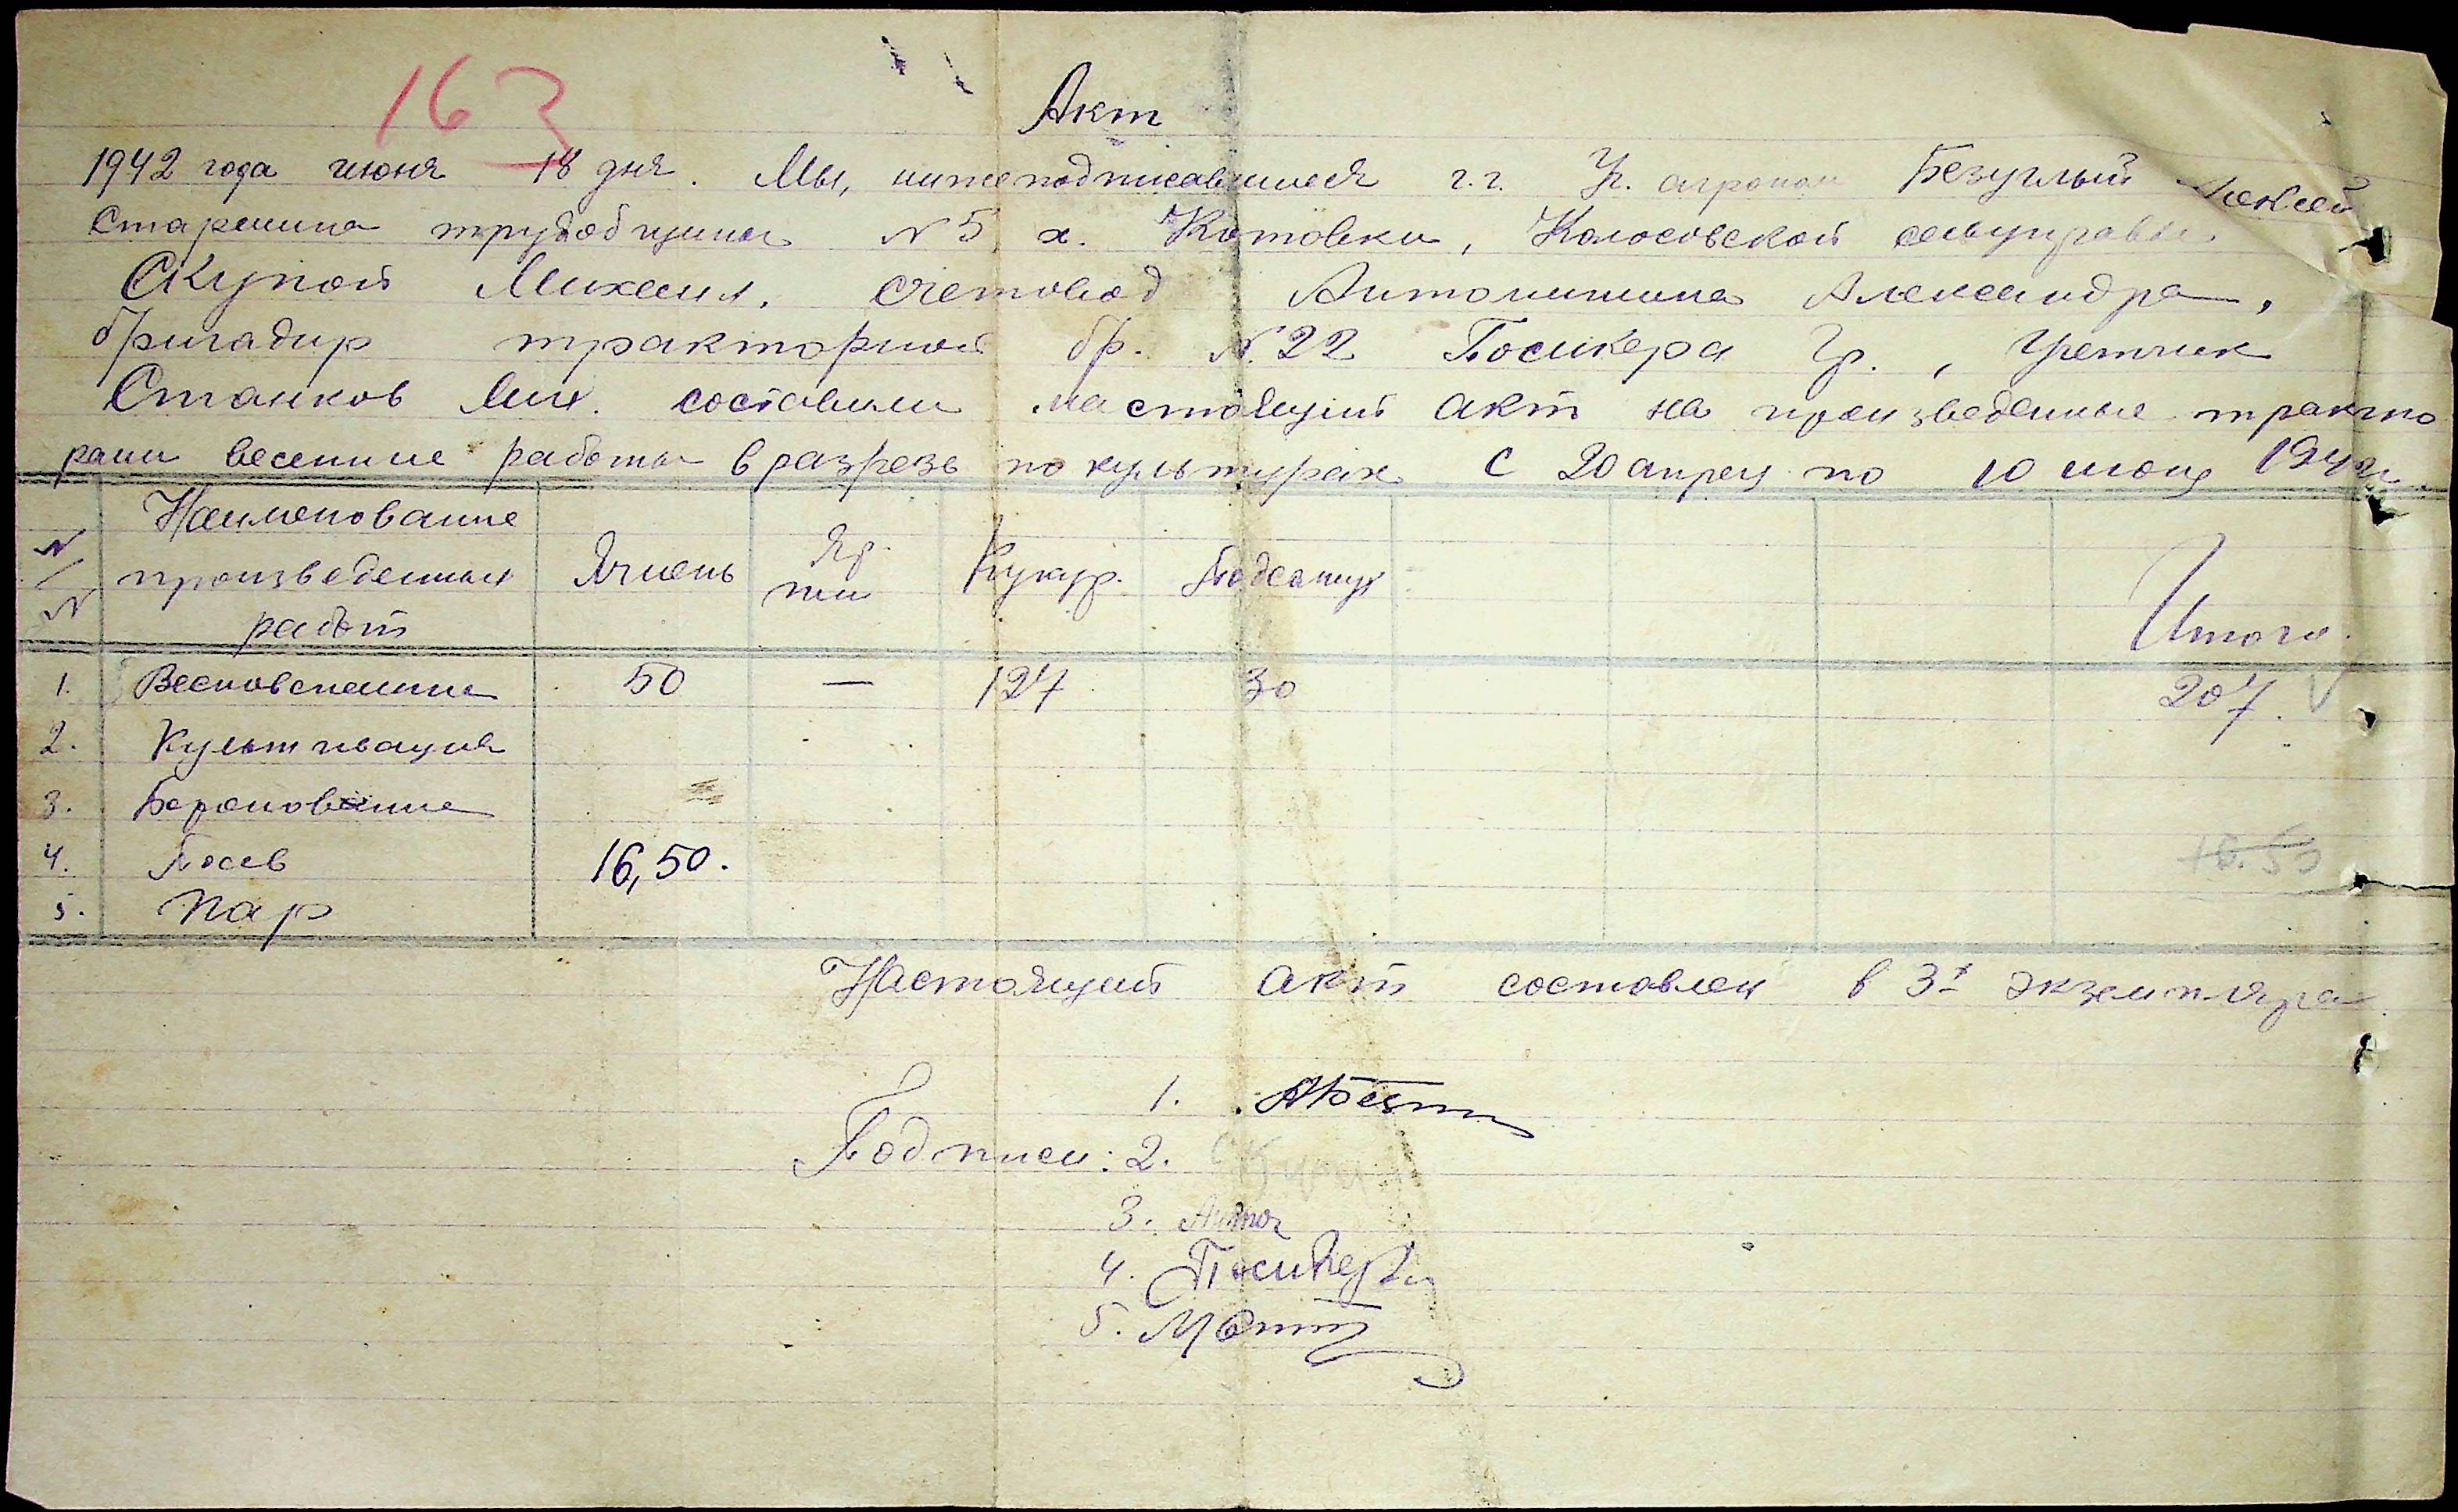 163
Акт
1942 года июня 18 дня. Мы, нижеподписавшиеся г.г. Уч. агроном Безуглый
Старшина трудобщины №5 х. Котовки, Колосовской сельуправы
Скупой Михаил, счетовод Антонишина Александра,
бригадир тракторной бр. №22 Посикера Гр., Учетчик
Станков Мих. составили настоящий акт на произведенные тракто
рами весенние работы в разрезе по культурах с 20 апреля по 10 июня 1942 г.
№/№ Наименование произведенных работ Ячмень Яр. пш Кукур. Подсолнух Итого.
1. Весновспашка 50 — 127 30 207.
2. Культивация
3. Боронование
4. Посев 16,50. 16.50
5. Пар
Настоящий акт составлен в 3х экземплярах.
Подписи: 1.
2.
3. Антон
4. Посикера
5.